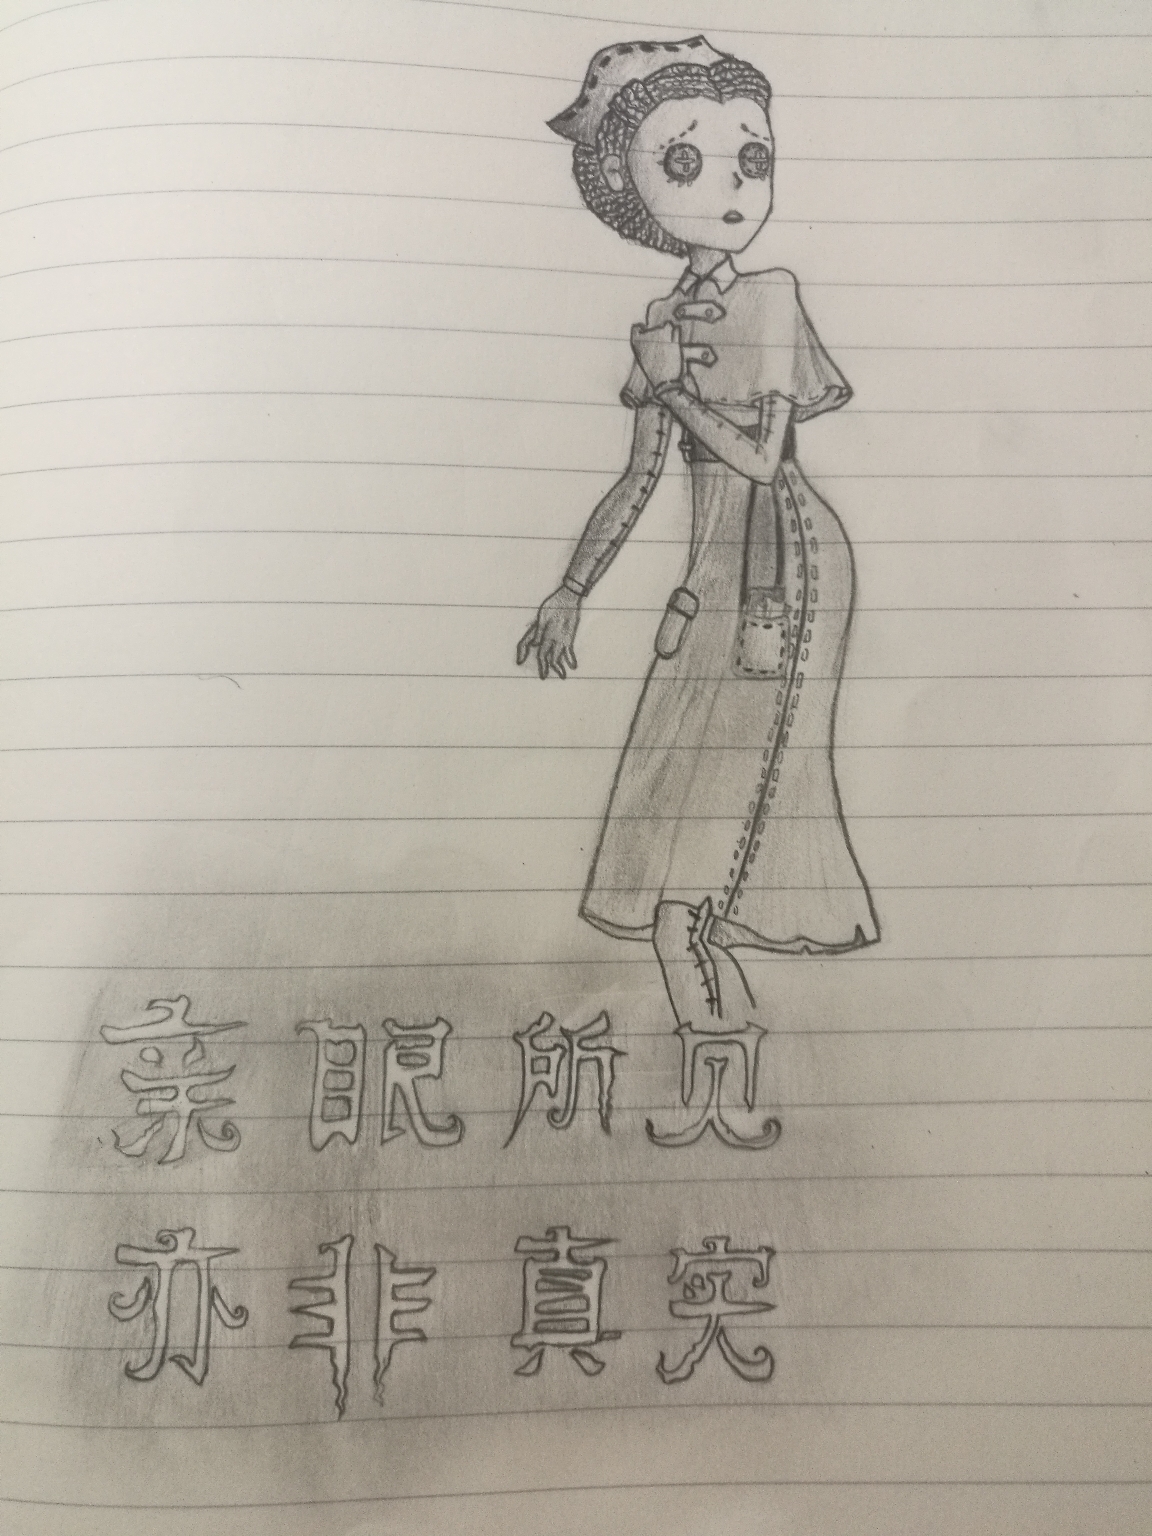 亲眼所见
亦非真实